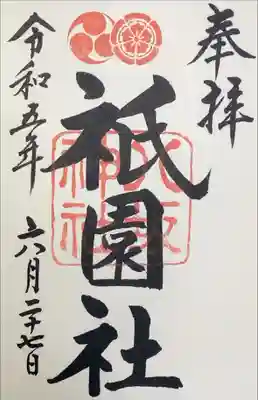 奉拝
祇園社
八坂神社
令和五年
六月二十七日